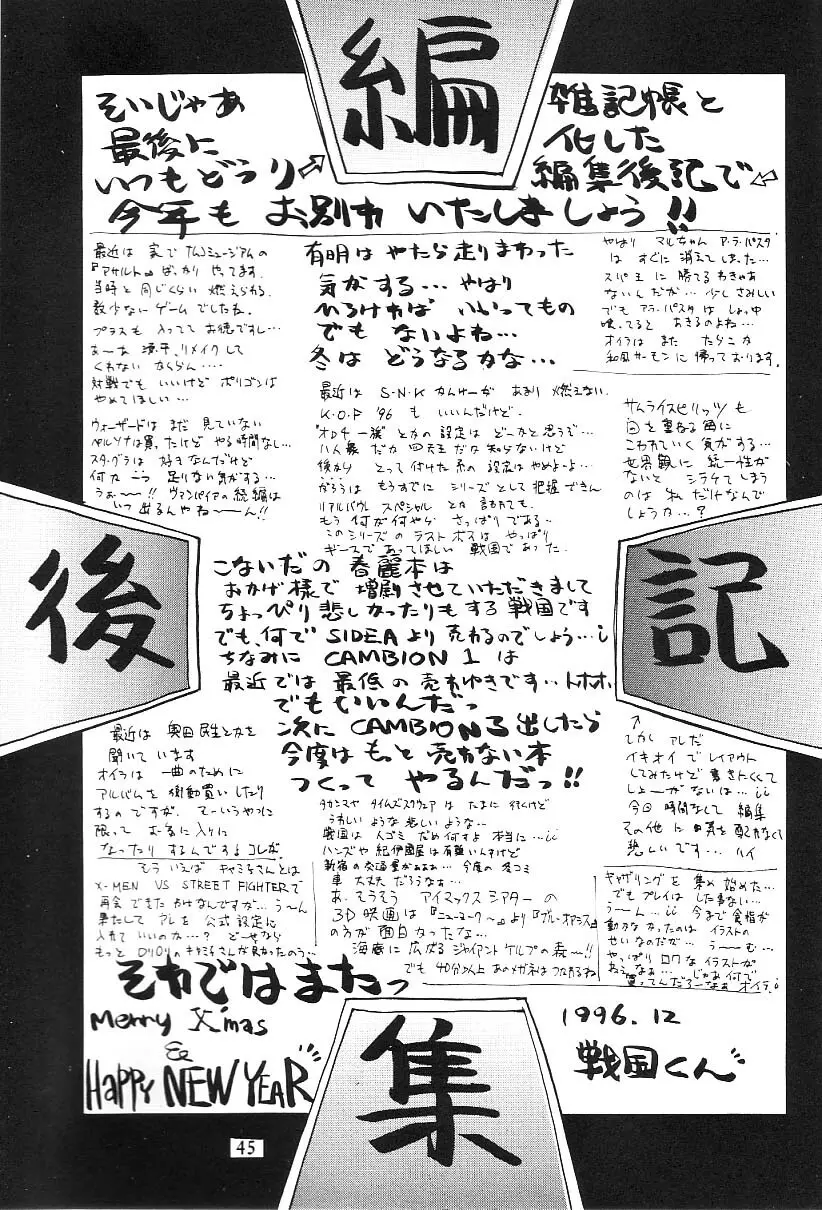 編
集
後
記
そいじゃあ
最後に
いつもどうり⇨
雑記帳と
化した
編集後記で⇦
今年も お別れ いたしましょう!!
最近は 家で ナムコミュージアムの
『アサルト』ばっかり やってます。
当時と 同じくらい 燃えられる
数少ない ゲーム でしたね。
プラスも 入ってて お徳ですし…
あーあ 源平、リメイクして
くれない ならん….
対戦でも いいけど ポリゴンは
やめてほしい…
ウォーザードは まだ 見ていない
ペルソナは買ったけど やる時間なし…
スタ・グラは 好きなんだけど
何か 一つ 足りない気がする…
うおー〜!! ヴァンパイアの続編は
いつ 出るんやね〜〜ん!!
有明は やたら走りまわった
気がする… やはり
ひろければ いいってもの
でも ないよね…
冬は どうなるかな…
やはり マルちゃん ア・ラ・パスタ
は すぐに 消えてしまった…
スパ王 に 勝てる わきゃあ
ないんだが… 少し さみしい
でも ア・ラ・パスタは しょっ中
喰ってると あきるのよね…
オイラは また たらこか
和風サーモン に 帰っております。
最近は S-N-K かんけーが あまり 燃えない
K.O.F '96 も いいんだけど.
"オロチ一族" とかの 設定は どーかと思うぞ…
八人衆 だか 四天王 だか 知らないけど
後から とって付けた系の 設定は やめよーよ…
がろうは もうすでに シリーズとして 把握できん
リアルバウト スペシャル とか 言われても、
もう 何が何やら さっぱりである〜
このシリーズの ラストボスは やっぱり
ギースで あってほしい 戦国であった.
サムライスピリッツ も
回を重ねる毎に
こわれていく 気がする…
世界観に 統一性が
ないと シラケてしまう
のは 私だけなんで
しょうか…?
こないだの 春麗本は
おかげ様で 増刷させていただきまして
ちょっぴり悲しかったりもする戦国です
でも、何で SIDEAより売れるのでしょう…¡
ちなみに CAMBION 1 は
最近では 最低の 売れゆきです‥トホホ.
でもいいんだっ
次に CAMBION 3 出したら
今度は もっと 売れない本
つくって やるんだっ!!
最近は 奥田民生とかを
聞いて います
オイラは 一曲のために
アルバムを 衝動買いしたり
するのですが、そーいうやつに
限って お気に入りに
なったり するんですよコレが.
↑
しかし アレだ
イキオイで レイアウト
してみたけど 書きにくくて
しょーがないは…¡¡
今回 時間なくて 編集
その他に 日気を配れなくて
悲しいです… ハイ
タカシマヤ タイムズスクウェアは たまに 行くけど
うれしい ような 悲しい ような‥
戦国は 人ゴミ だめ何すよ 本当に…¡¡
ハンズや 紀伊國屋は 有難いんすけど
新宿の交通量がぁぁぁ… 今度の 冬コミ
車 大丈夫 だろうなぁ…
あ、そうそう アイマックスシアターの
3D映画は『ニューヨーク〜』より『ブルー・オアシス』
のうが 面白かったな…
海底に 広がる ジャイアントケルプの森〜!!
でも 40分以上 あのメガネは つかれるね
そう いえば キャミ子さんとは
X-MEN VS STREET FIGHTERで
再会できた わけなしですが… う〜ん
果たして アレを 公式設定に
入れて いいのか…? どーせなら
もっと ロリロリの キャミ子さんが 良かったのう…
ギャザリングを 集め 始めた…
でも プレイは した事ない…
う〜ん…¡¡ 今まで 食指が
動かなかったのは イラストの
せいなのだが… う〜む…
やっぱり ロクな イラストが
ねぇなぁ… じゃあ 何で
買ってんだろーなぁ オイラ.¡
それではまたっ
Merry X'mas
&
HAPPY NEW YEAR
1996.12
戦国くん
45